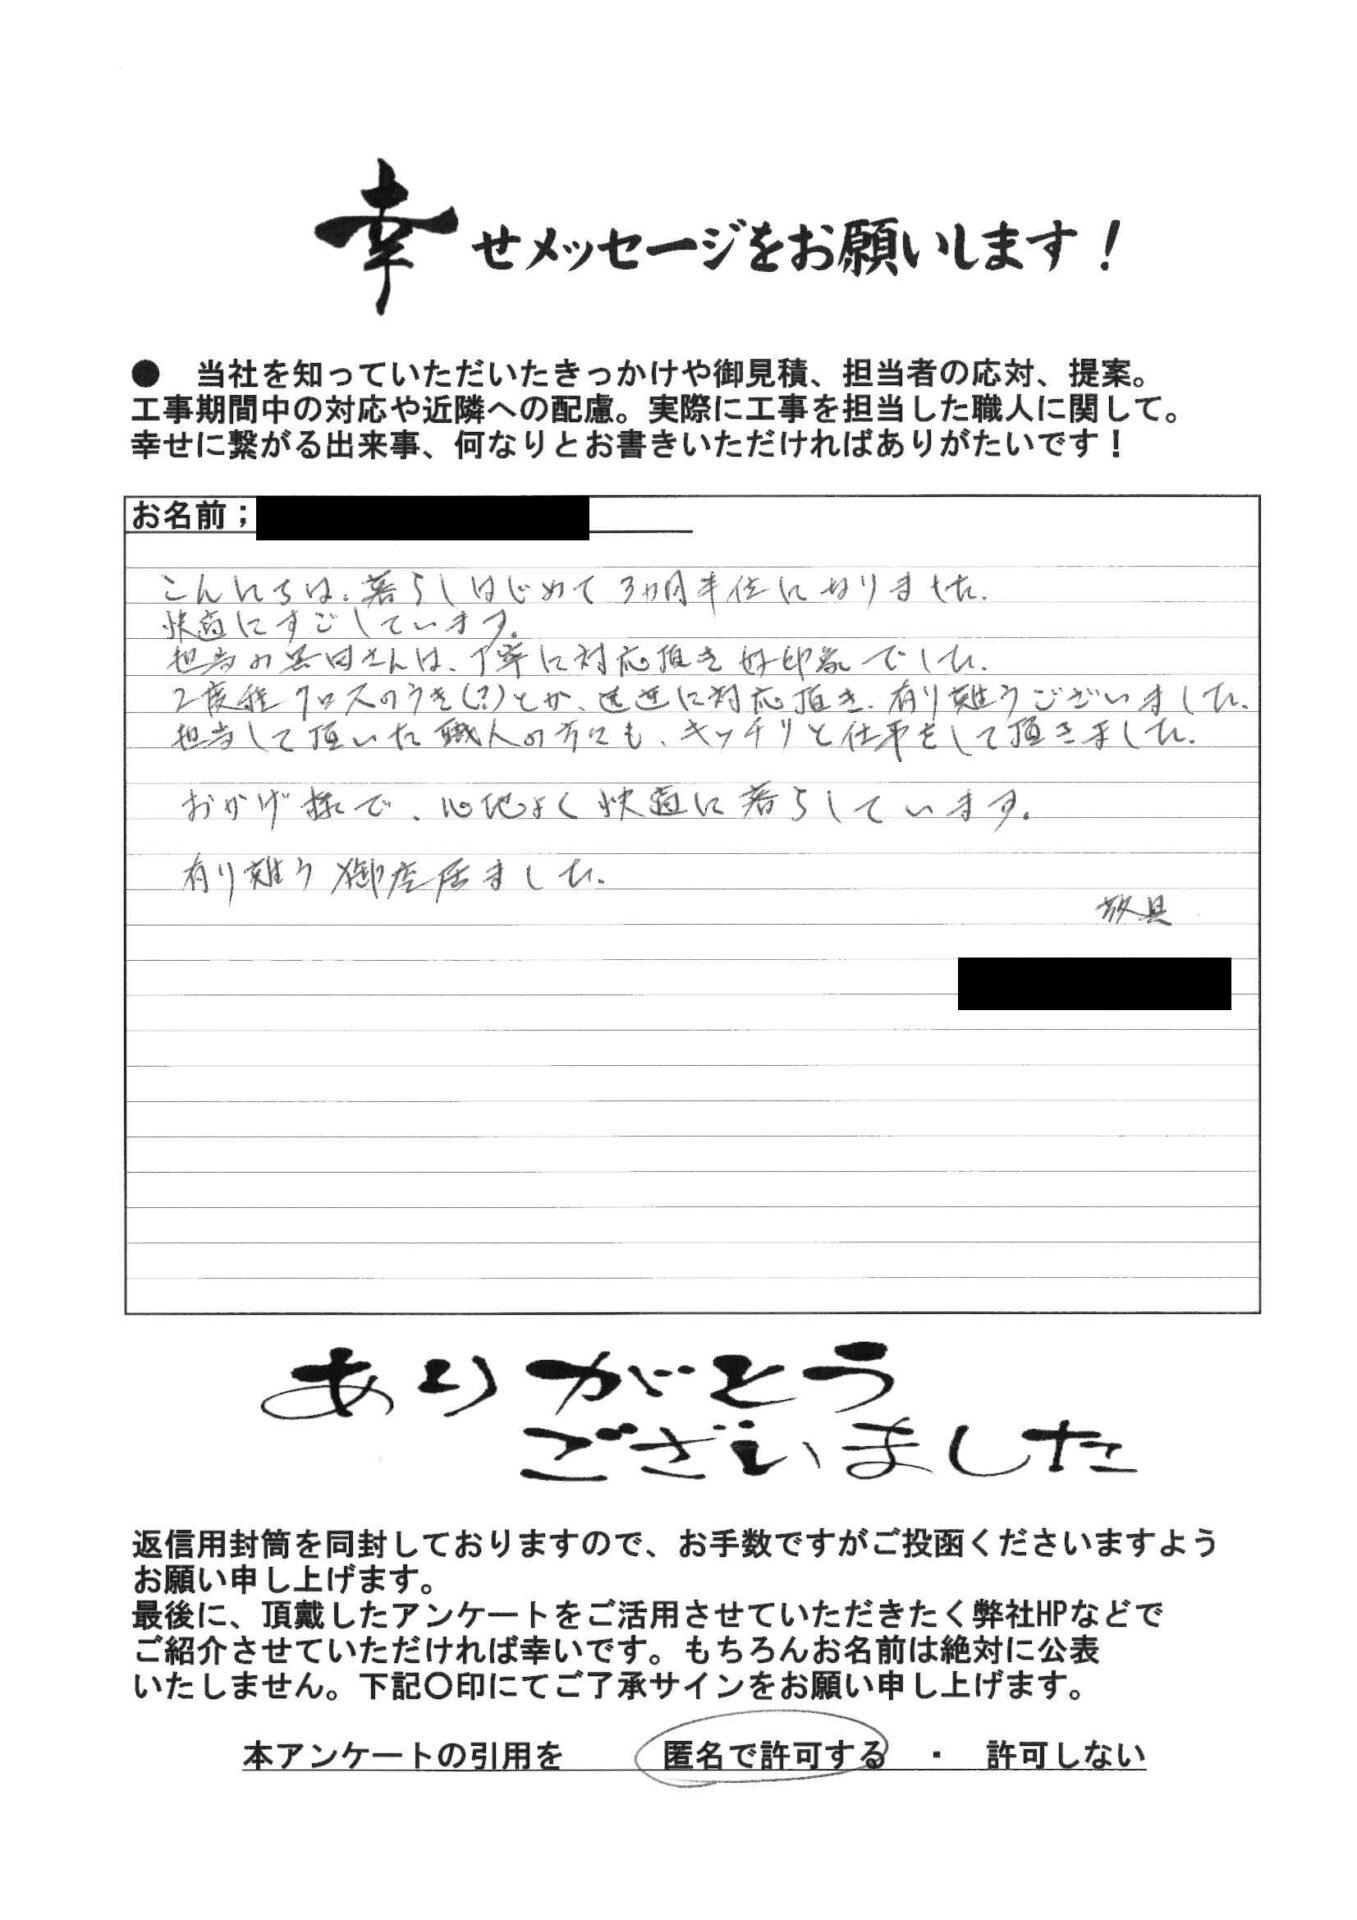 幸せメッセージをお願いします！
● 当社を知っていただいたきっかけや御見積、担当者の応対、提案。
工事期間中の対応や近隣への配慮。実際に工事を担当した職人に関して。
幸せに繋がる出来事、何なりとお書きいただければありがたいです！
お名前；
こんにちは、暮らしはじめて3カ月半位になりました。
快適にすごしています。
担当の さんは、丁寧に対応頂き好印象でした。
2度程クロスのうき(?)とか、迅速に対応頂き、有り難うございました。
担当して頂いた職人の方にも、キッチリと仕事をして頂きました。
おかげ様で、心地よく快適に暮らしています。
有り難う御座居ました。
敬具
ありがとう
ございました
返信用封筒を同封しておりますので、お手数ですがご投函くださいますよう
お願い申し上げます。
最後に、頂戴したアンケートをご活用させていただきたく弊社HPなどで
ご紹介させていただければ幸いです。もちろんお名前は絶対に公表
いたしません。下記〇印にてご了承サインをお願い申し上げます。
本アンケートの引用を 匿名で許可する ・ 許可しない